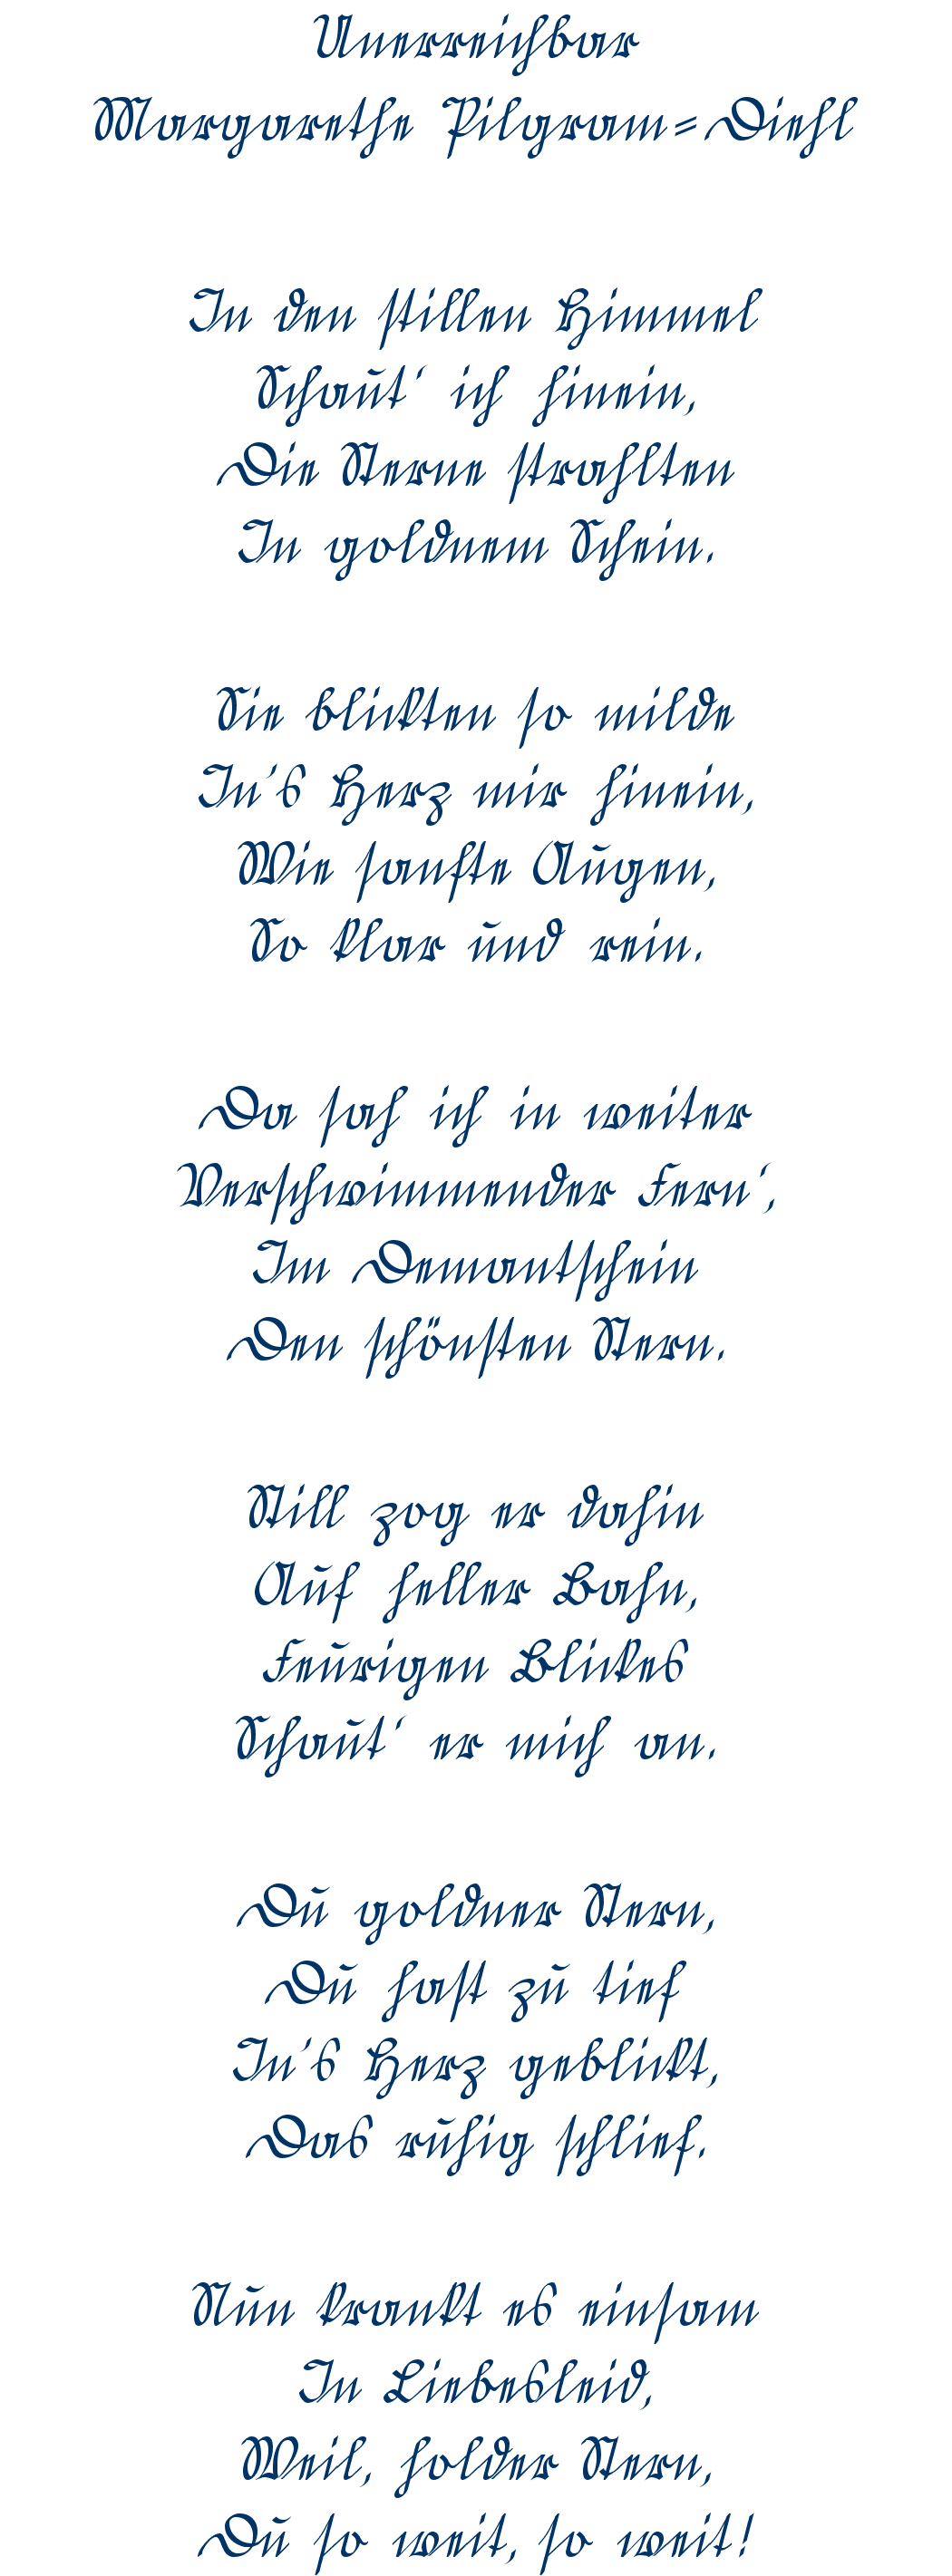 Unerreichbar
Margarethe Pilgram=Diehl
In den stillen Himmel
Schaut' ich hinein,
Die Sterne strahlten
In goldnem Schein.
Sie blickten so milde
In's Herz mir hinein,
Wie sanfte Augen,
So klar und rein.
Da sah ich in weiter
Verschwimmender Fern',
Im Demantschein
Den schönsten Stern.
Still zog er dahin
Auf heller Bahn,
Feurigen Blickes
Schaut' er mich an.
Du goldner Stern,
Du hast zu tief
In's Herz geblickt,
Das ruhig schlief.
Nun krankt es einsam
In Liebesleid,
Weil, holder Stern,
Du so weit, so weit!